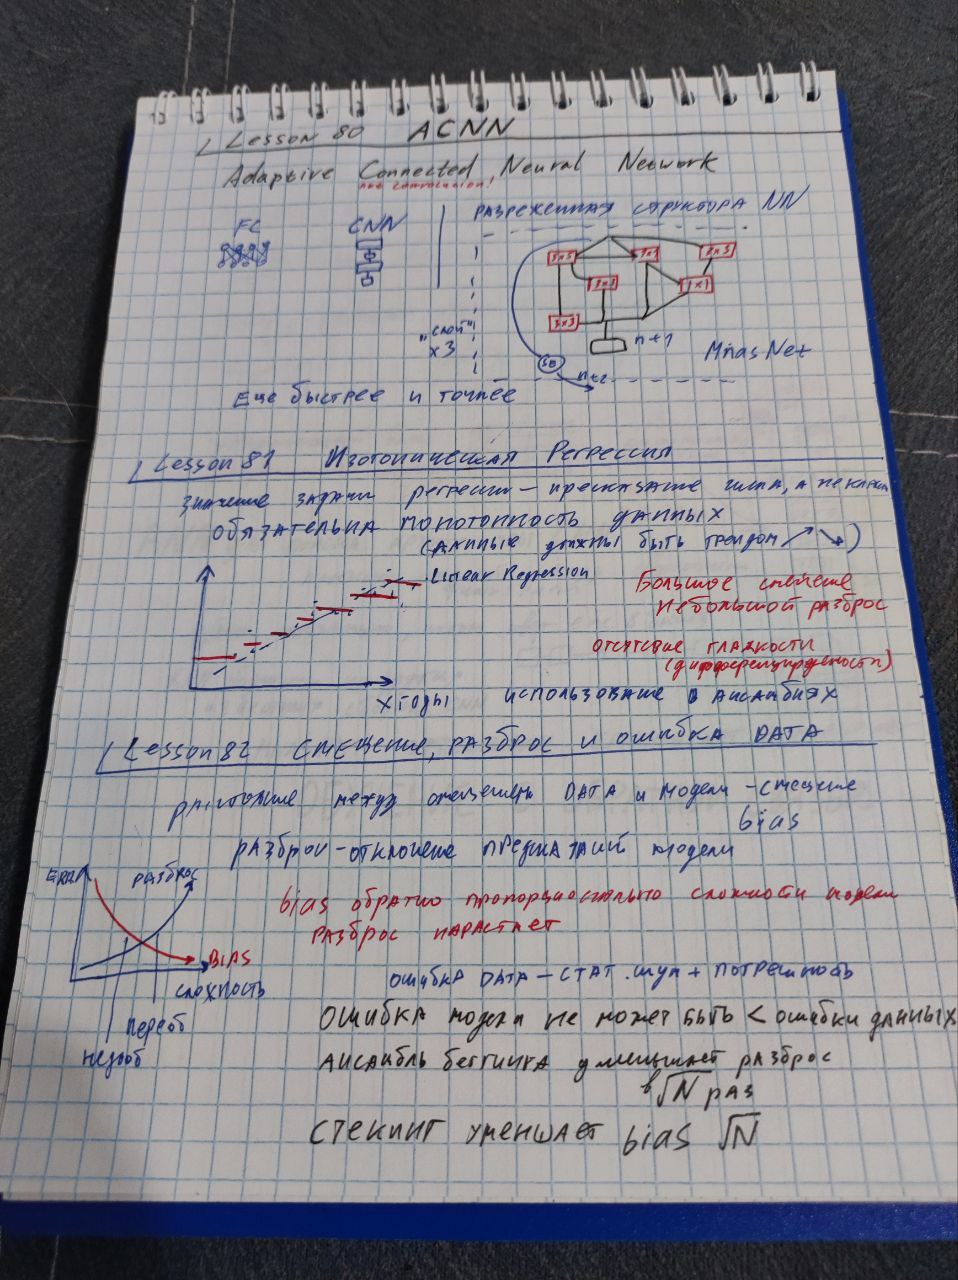 Lesson 80 ACNN
Adaptive Connected Neural Network
not convolusion!
FC CNN разреженная структура NN
5x5 7x7 5x5
3x3 1x1
3x3
"слой"
x3
SE
n+1
n+2
MnasNet
Еще быстрее и точнее
Lesson 81 Изотоническая Регрессия
значение задачи регрессии – предсказание числа, а не класса
обязательна монотонность данных
(данные должны быть трендом)
Linear Regression
Большое смещение
Небольшой разброс
отсутсвие гладкости
(дифференцируемости)
x годы использование в ансамблях
Lesson 82 Смещение, разброс и ошибка DATA
между DATA и модели – смещение
bias
разброс – отклонение предсказаний модели
ERR разброс
bias обратно пропорционально сложности модели
разброс нарастает
BIAS
сложность
ошибка DATA – стат. шум + погрешность
переоб
недооб
ошибка модели не может быть < ошибки данных
ансамбль беггинга уменьшает разброс
в √N раз
стекинг уменшает bias √N